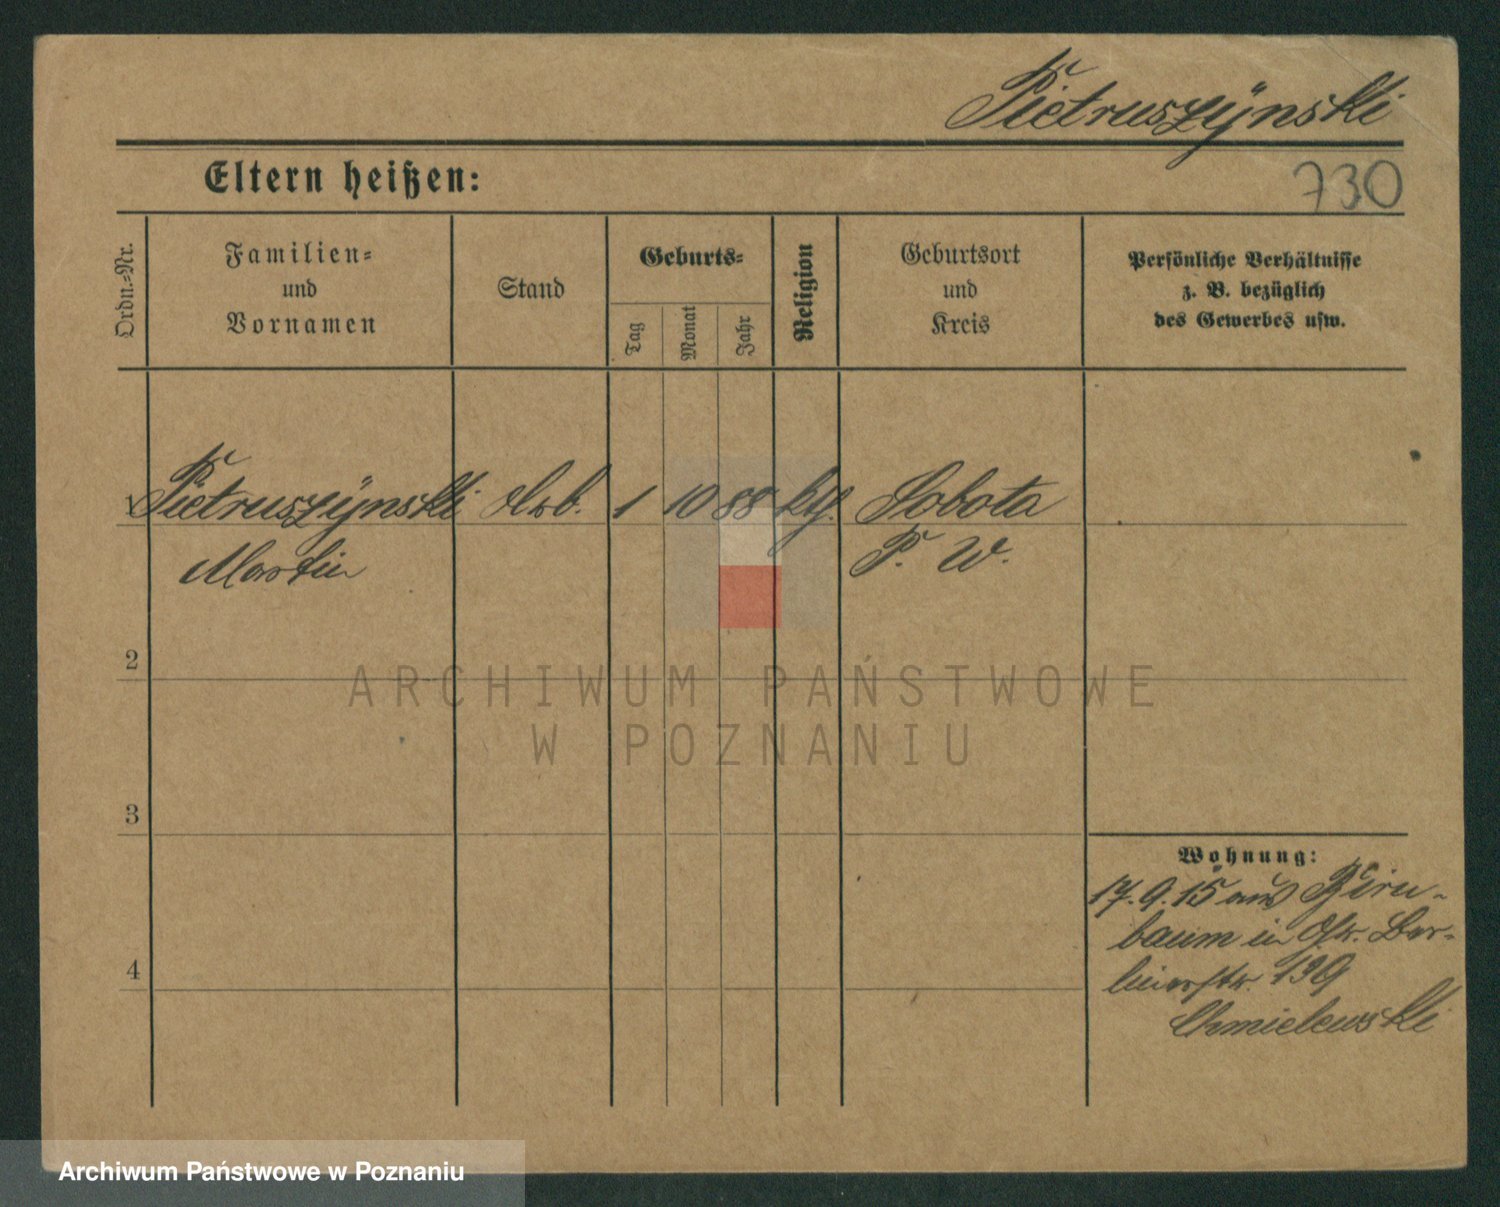 Pietruszÿnski
Eltern heißen:
730
Ordn.-Nr.
Familien-
und
Vornamen
Stand
Geburts-
Tag
Monat
Jahr
Religion
Geburtsort
und
Kreis
Persönliche Verhältnisse
z. B. bezüglich
des Gewerbes usw.
1 Pietruszÿnski Arb. 1 10 88 kth. Sobota
Martin P. W.
2
ARCHIWUM PAŃSTWOWE
W POZNANIU
3
Wohnung:
17.9.15 aus Birn-
baum in Ber-
linerstr. 139
4
Chmielewski
Archiwum Państwowe w Poznaniu